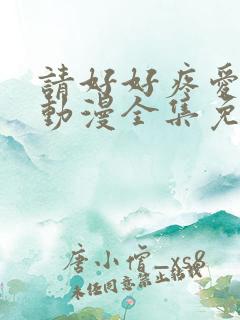 請好好疼愛
動漫全集免
唐小僧_xs8
未任同意禁止轉載